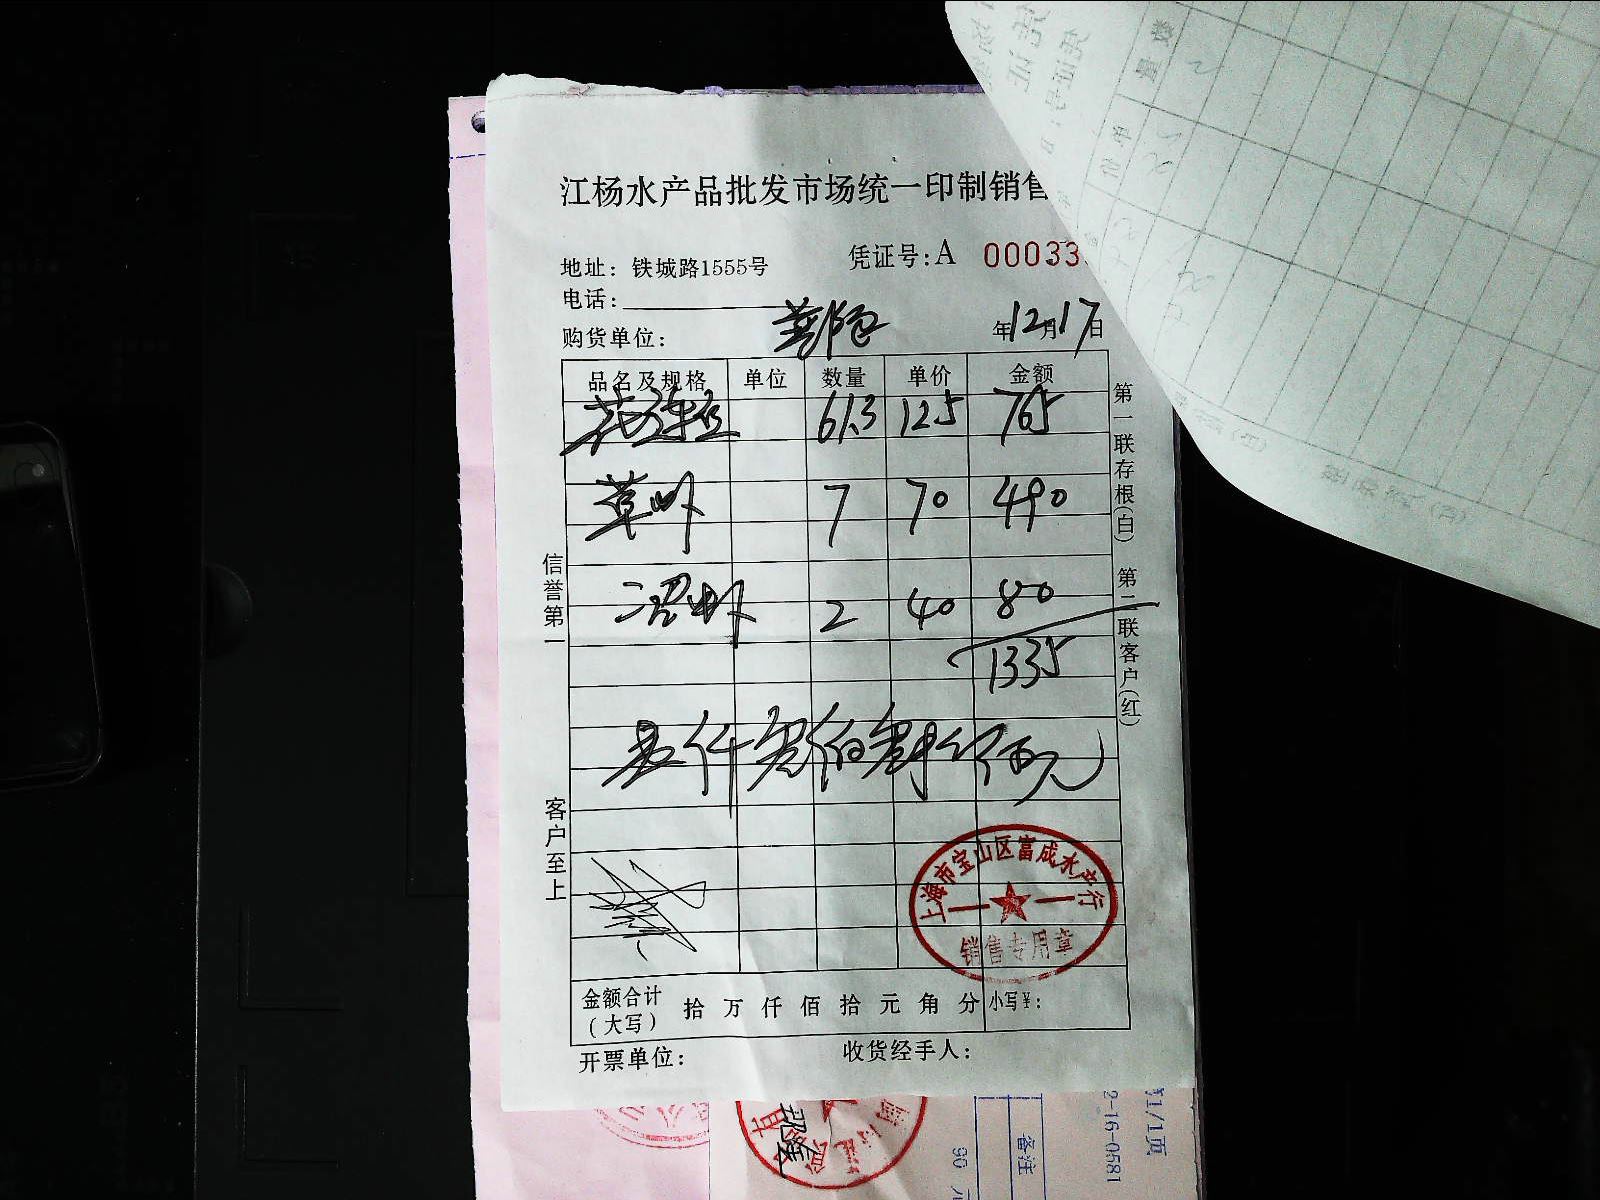 江杨水产品批发市场统一印制销售
地址：铁城路1555号
凭证号：A 00033
电话：
购货单位：
年12月17日
品名及规格 单位 数量 单价 金额
花 61.3 12.5 765
草虾 7 70 490
沼虾 2 40 80
1335
壹仟叁佰叁拾伍元
信誉第一
客户至上
第一联存根(白) 第二联客户(红)
上海市宝山区富成水产行
销售专用章
金额合计（大写） 拾 万 仟 佰 拾 元 角 分 小写¥：
开票单位：
收货经手人：
1/1页
2-16-0581
备注
90 元